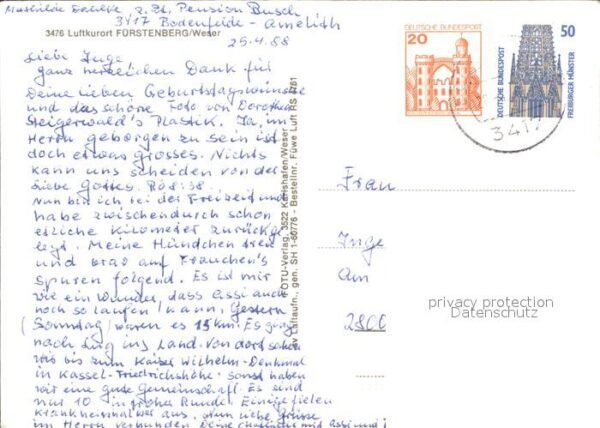 Mathilde z. Zt. Pension Busch
3417 Bodenfelde - Amelith
3476 Luftkurort FÜRSTENBERG/Weser
25.4.88
Liebe Inge
Ganz herzlichen Dank für
Deine lieben Geburtstagswünsche
und das schöne Foto von Dorothea
Steigerwald's Plastik. Ja, im
Herrn geborgen zu sein ist
doch etwas grosses. Nichts
kann uns scheiden von der
Liebe Gottes. Rö 8:38.
Nun bin ich bei der Freizeit und
habe zwischendurch schon
etliche Kilometer zurückge
legt. Meine Hündchen treu
und brav auf Frauchen's
Spuren folgend. Es ist mir
wie ein Wunder, dass Assi auch
noch so laufen kann, Gestern
(Sonntag) waren es 15 km. Es ging
nach ins Land. Von dort schon
bis zum Kaiser Wilhelm-Denkmal
in Kassel-Friedrichshöhe. Sonst haben
wir eine gute Gemeinschaft. Es sind
nur 10 in froher Runde. Einige fielen
krankheitshalber aus. liebe Grüsse
im Herrn verbunden Deine mit Assi und
FOTU-Verlag, 3522 Karlshafen/Weser
Luftaufn., gen. SH 1-60/76 - Bestellnr. Füwe Luft RS
DEUTSCHE BUNDESPOST
20
50
DEUTSCHE BUNDESPOST
FREIBURGER MÜNSTER
3417
Frau
Inge
Am
2800
privacy protection
Datenschutz